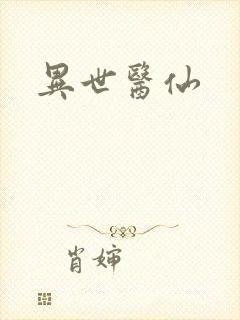 異世醫仙
肖嬸